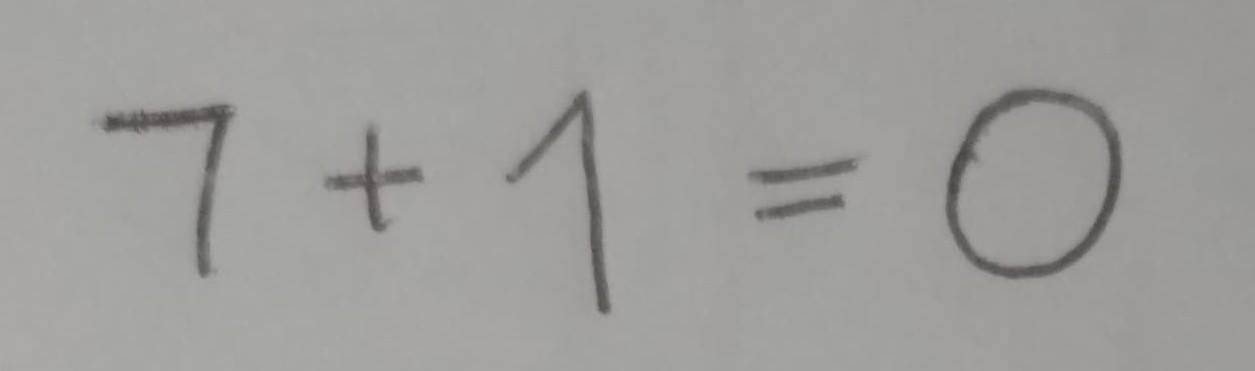 7 + 1 = 0